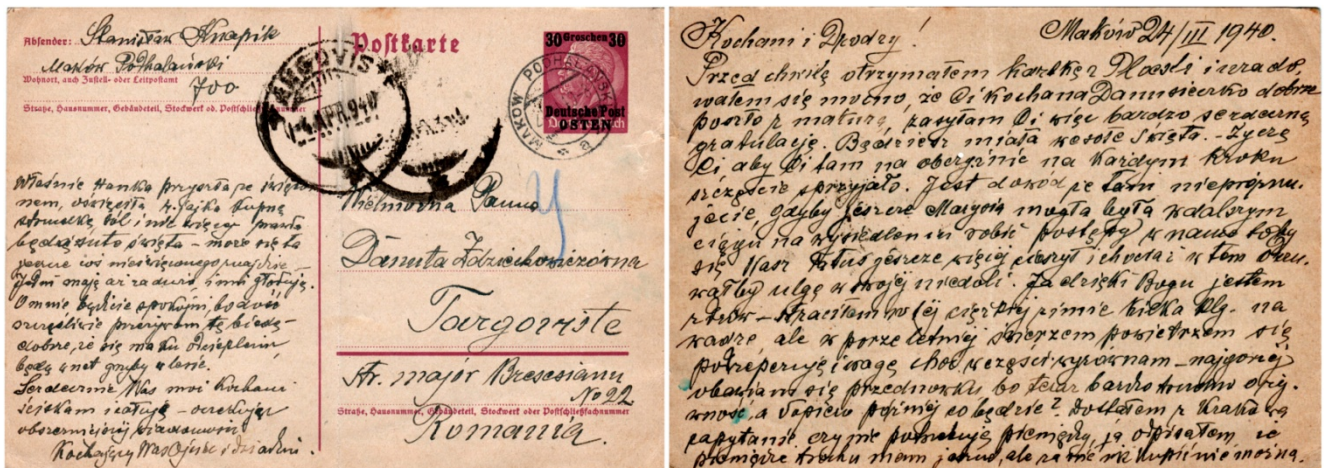 Absender: Stanisław Knapik
Maków Podhalański
Wohnort, auch Zustell- oder Leitpostamt
700
Straße, Hausnummer, Gebäudeteil, Stockwerk od. Postschließfachnummer
Postkarte
30 Groschen 30
Deutsche Post
OSTEN
MAKOW PODHALANSKI
TARGOVIS
APR. 940
Wielmożna Panna
Danuta Zdziechowiczówna
Targoviste
Str. major Brescianu
No 22
Straße, Hausnummer, Gebäudeteil, Stockwerk oder Postschließfachnummer
Romania.
Właśnie Hanka przyszła ze święco-
nem, oświęciła 4 jajka
sól i nic więcej
będą święta – może się to
jeszcze coś nieświęconego znajdzie
mają aż radość, inni głodują.
O mnie bądźcie spokojni, bo dość
szczęśliwie przeżywam tę biedę –
dobrze, że się ma ku ociepleniu
będą wnet grzyby w lesie.
Serdecznie Was moi Kochani
ściskam i całuję – oczekując
obszerniejszej wiadomości
Kochający Was Ojciec i dziadzio.
Kochani i Drodzy! Maków 24/III 1940.
Przed chwilą otrzymałem kartkę z Płoesti i urado-
wałem się mocno, że Ci kochana Danusieczko dobrze
poszło z maturą, zasyłam Ci więc bardzo serdeczną
gratulację. Będziesz miała wesołe Święta. – Życzę
Ci aby Ci tam na obczyźnie na każdym kroku
szczęście sprzyjało. Jest dowód że tam niepróżnu-
jecie, gdyby jeszcze Marysia mogła była w dalszym
ciągu na wysiedleniu robić postępy w nauce toby
się Wasz Tatuś jeszcze więcej cieszył i chociaż w tem
ulgę w swojej niedoli. Ja dzięki Bogu jestem
zdrów – straciłem w tej ciężkiej zimie kilka klg. na
wadze, ale w porze letniej świeżem powietrzem się
podreperuję i wagę choć w części wyrównam – najgorzej
obawiam się przednówku bo teraz bardzo trudno o ży-
wność, a dopiero później co będzie? Dostałem z Krakowa
zapytanie, czy nie potrzebuję pieniędzy, ja odpisałem że
pieniądze trochu mam jeszcze, ale za nie nic kupić nie można.